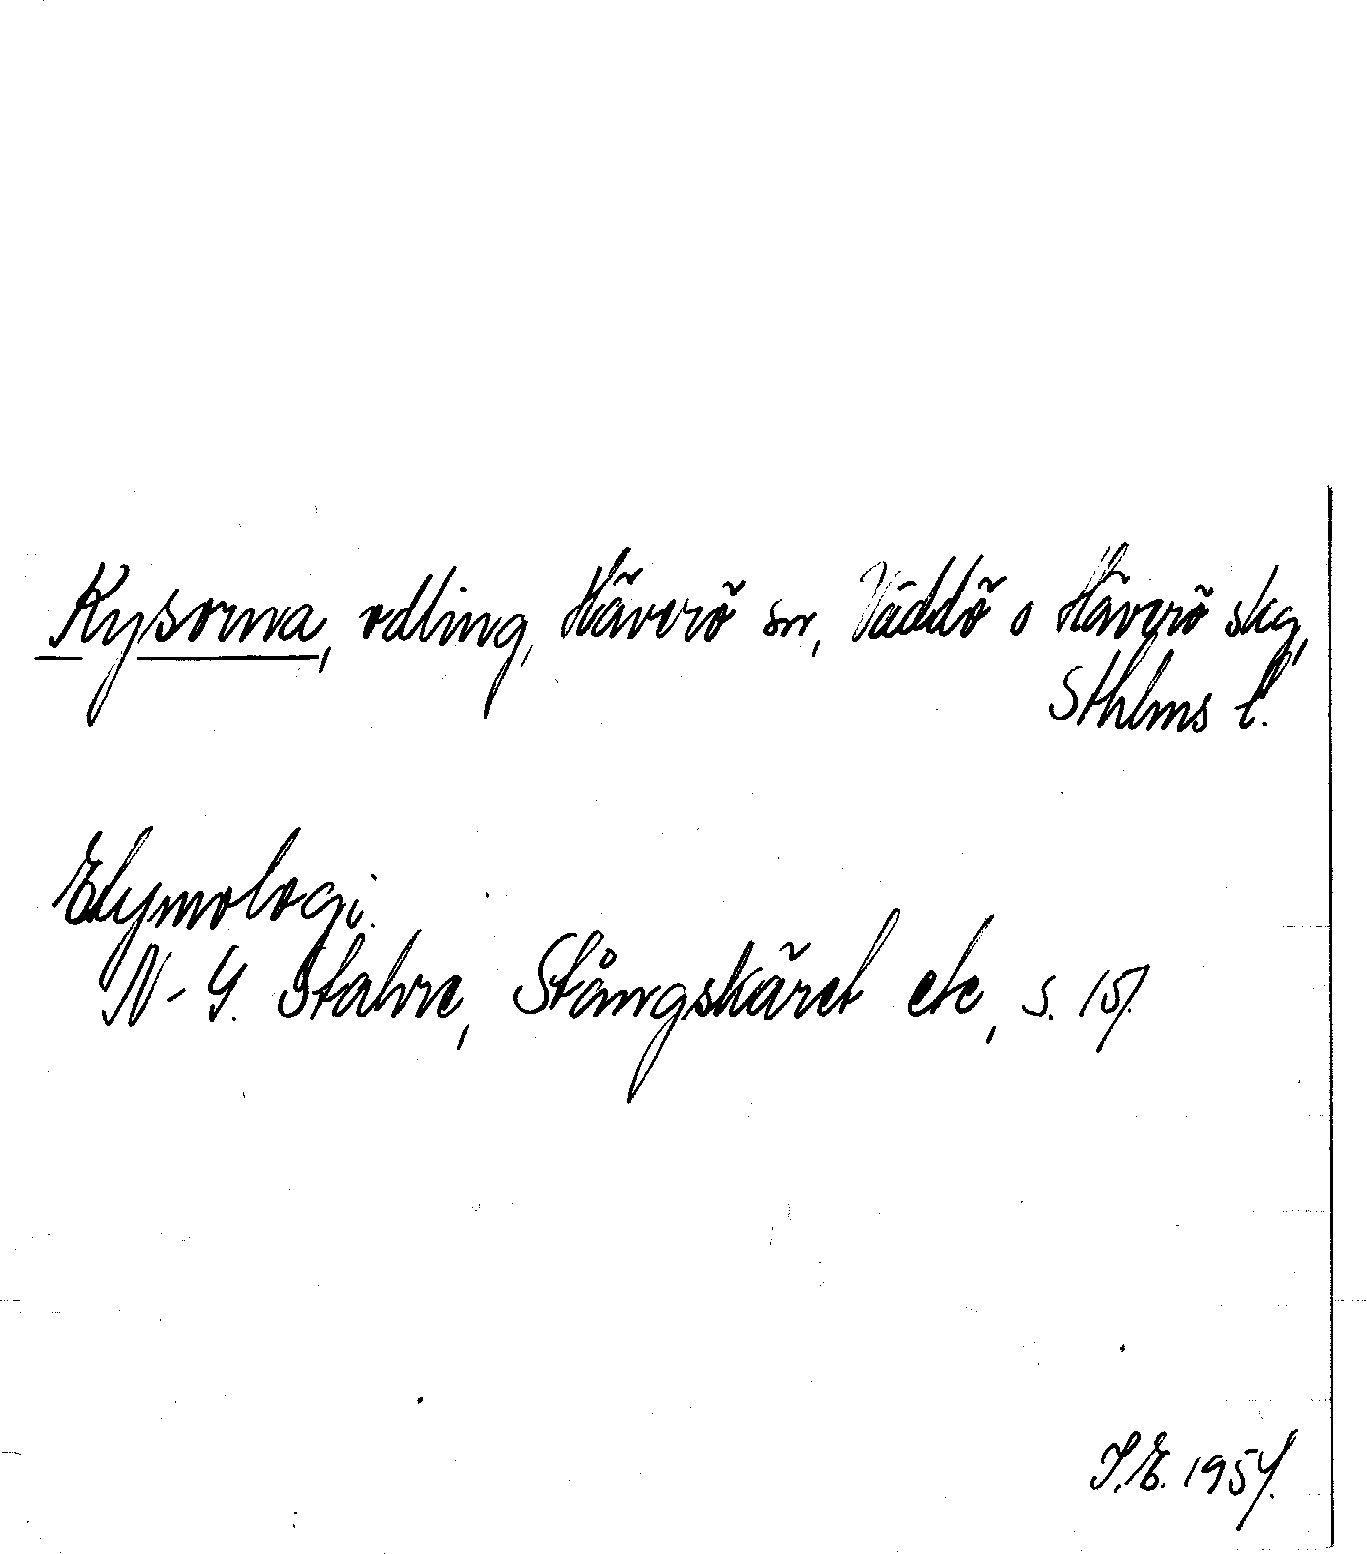 Kysorna, odling, Häverö sn, Väddö o Häverö skg,
Sthlms l.
Etymologi.
N-G. Stahre, Stångskäret etc, s. 15f.
I.E. 1954.